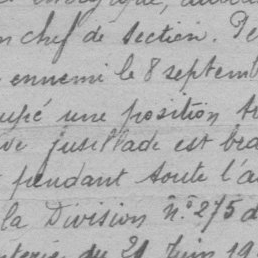 n chef de section. Pe
ennemi le 8 septemb
upé une position
ve fusillade est
pendant toute l'a
la Division n° 275 d
du 21 Juin 19